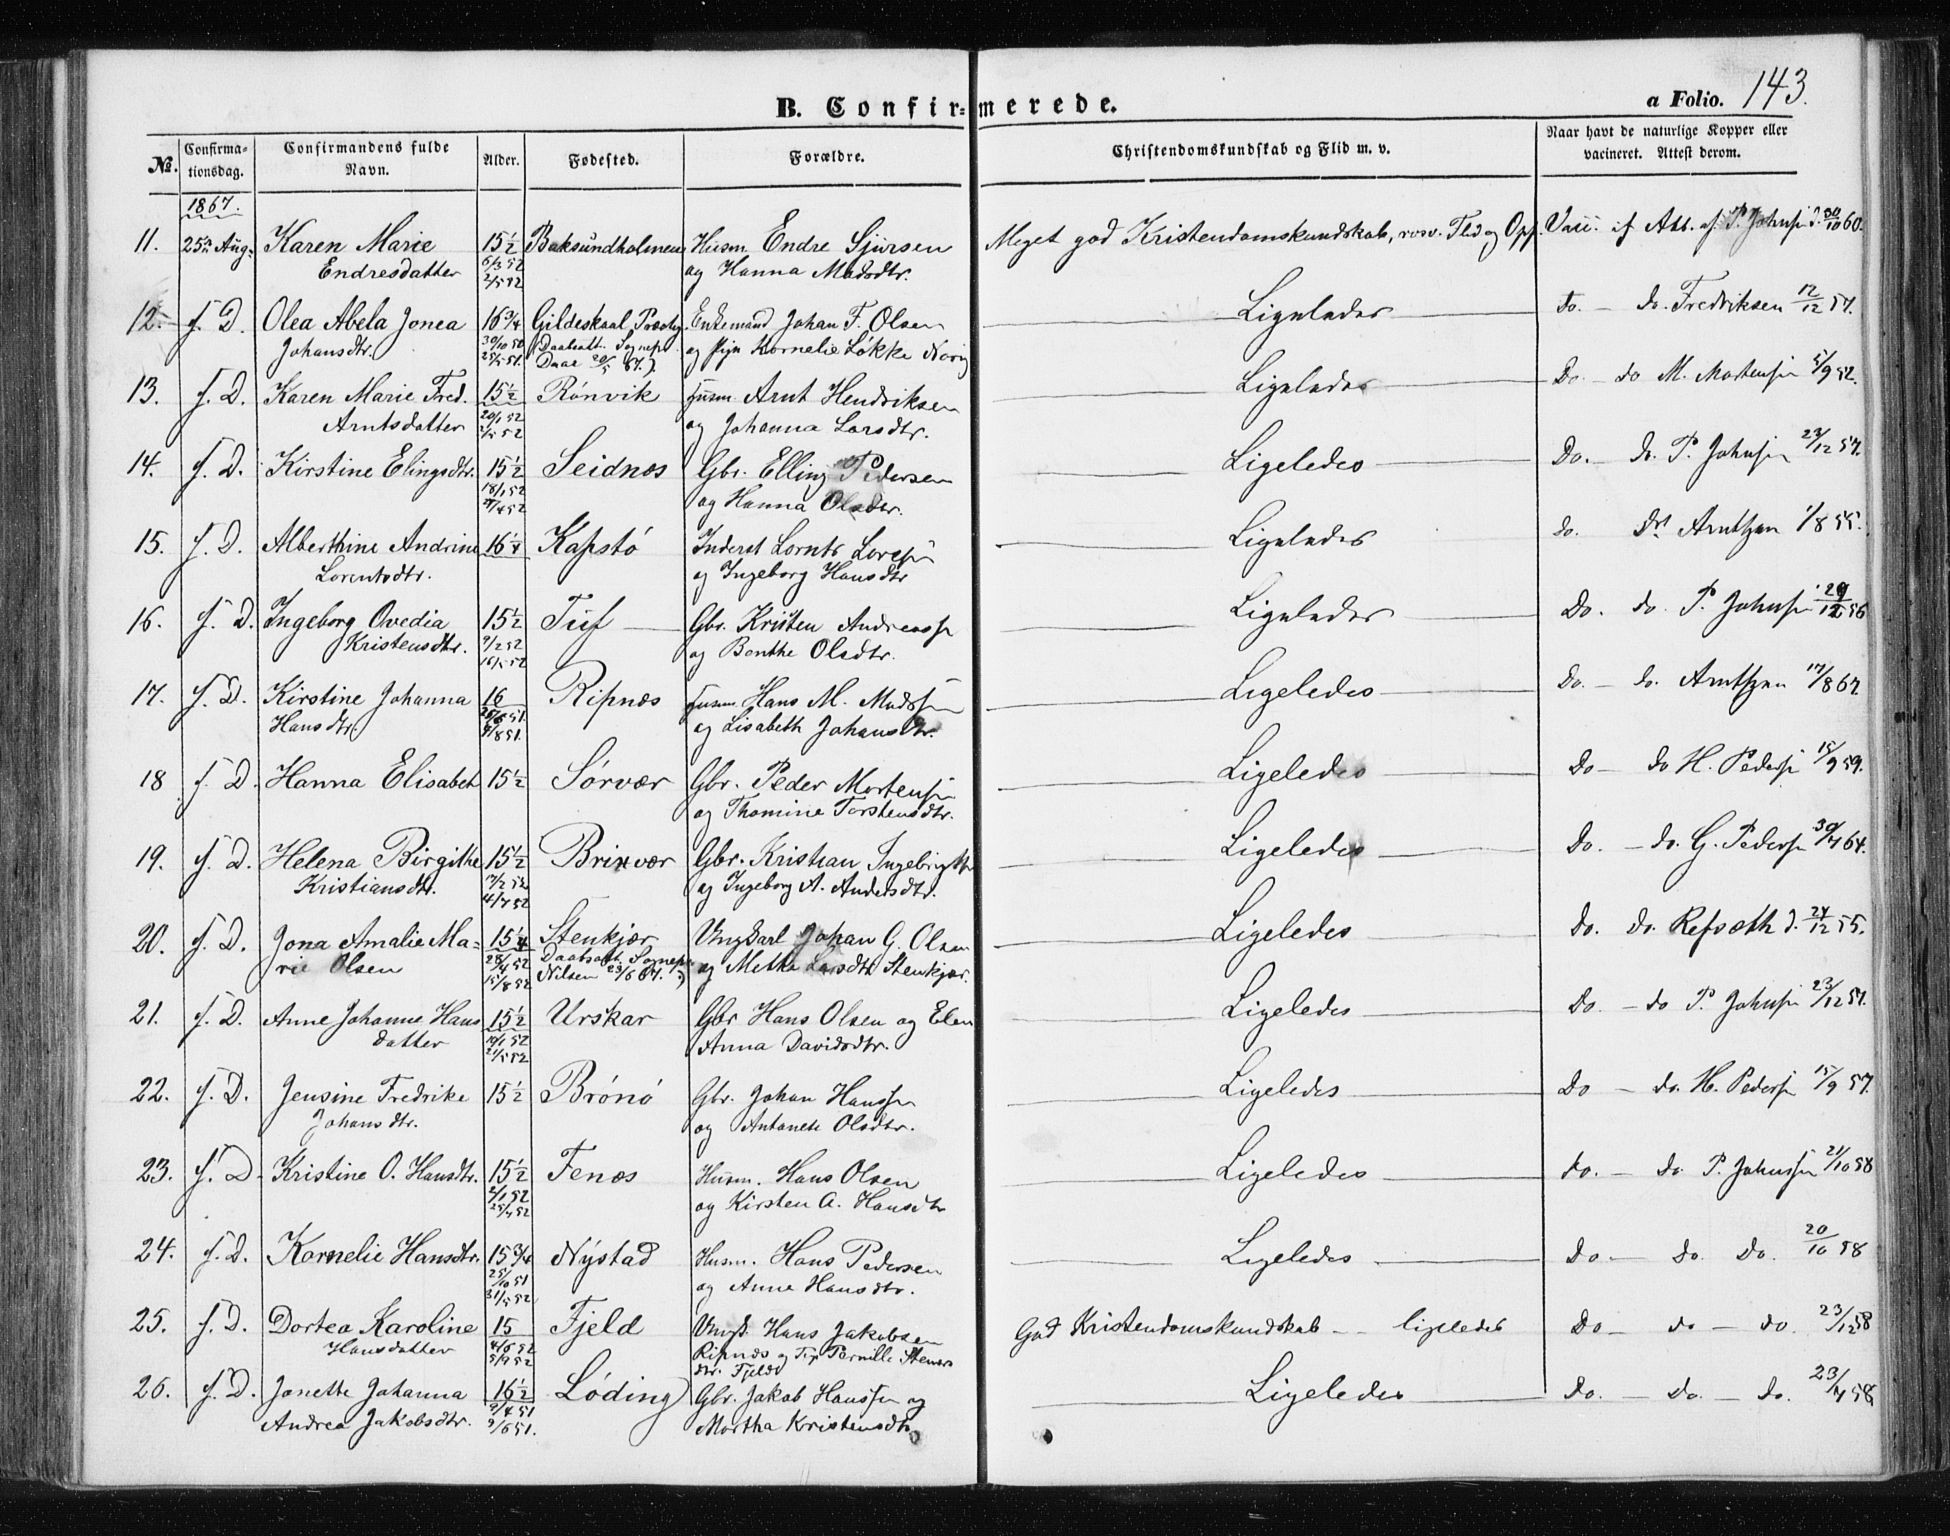 B. Confir=merede.
a Folio. 143.
№. Confirmationsdag. Confirmandens fulde Navn. Alder. Fødested. Forældre. Christendomskundskab og Flid m. v. Naar havt de naturlige Kopper eller vacineret. Attest derom.
1867.
11. 25de Aug. Karen Marie 15 1/2 Baksundholmen Husm Endre Sjursen Meget god Kristendomskundskab, rosv. Flid og Opf. Vacc. if Att. af P. Johnsen d. 30/10 60.
Endresdatter 6/3 52 og Hanna Madsdtr.
2/5 52
12. f. D. Olea Abela Jonea 16 3/4 Gildeskaal Præstg. Enkemand Johan F. Olsen Ligeledes do. — do. Fredriksen 12/12 57.
Johansdtr. 30/10 50 Daabsatt. Sognepr. og Pige Kornelie Løkke Novig
25/5 51. Daae 20/5 67.)
13. f. D. Karen Marie Fred. 15 1/2 Rönvik Husm Arnt Hendriksen Ligeledes Do. — do M. Mortensen 5/9 52.
Arntsdatter 20/1 52 og Johanna Larsdtr.
2/5 52
14. f. D. Kirstine Elingsdtr. 15 1/2 Seidnes Gbr. Elling Pedersen Ligeledes Do. — do. P. Johnsen 23/12 57.
18/1 52 og Hanna Olsdtr.
15. f. D. Alberthine Andrine 16 1/4 Kapstö Inderst Lornts Ligeledes do. do. Arntzen 1/8 55.
Lorentsdtr. og Ingeborg Hansdtr
16. f. D. Ingeborg Ovedia 15 1/2 Tuf Gbr. Kristen Andreass. Ligeledes Do. do. P. Johnsen 29/12 56
Kristensdtr. 9/2 52 og Benthe Olsdtr.
16/5 52
17. f. D. Kirstine Johanna 16 Ripnes Husm Hans M. Madsen Ligeledes Do. — do. Arntzen 17/8 67
Hansdtr. og Lisabeth Johansdtr.
18 f. D. Hanna Elisabet 15 1/2 Sörvær Gbr. Peder Mortensen Ligeledes Do — do H. Peders. 15/9 59.
og Thomine Torstensdtr.
19. f. D. Helena Birgithe 15 1/2 Brixvær Gbr. Kristian Ingebrigts. Ligeledes Do. — do. G. Peders. 30/7 64.
Kristiansdtr. 7/2 52 og Ingeborg A. Andersdtr.
4/7 52
20. f. D. Jona Amalie Ma= 15 1/4 Stenkjær Ungkarl Johan G. Olsen Ligeledes Do. do. Refsæth d. 24/12 55.
rie Olsen 28/4 52 Daabsatt. Sognepr. og Metha Larsdtr Stenkjær.
15/8 52 Nilsen 23/6 67.)
21. f. D. Anne Johanne Hans 15 1/2 Urskar Gbr Hans Olsen og Elen Ligeledes Do — do P. Johnsen 23/12 57.
datter 10/1 52 Anna Davidsdtr.
2/5 52
22. f. D. Jensine Fredrike 15 1/2 Brönö Gbr. Johan Hansen Ligeledes Do — do. H. Peders. 15/9 57.
Johansdtr. og Antonete Olsdtr.
23. f. D. Kristine O. Hansdtr. 15 1/2 Fenes Husm. Hans Olsen Ligeledes do. — do P. Johnsen 21/10 58
2/1 52 og Kirsten A. Hansdtr
25/4 52
24. f. D. Kornelie Hansdtr. 15 3/4 Nystad Husm. Hans Pedersen Ligeledes do — do. Do. 20/10 58
25/10 51 og Anne Hansdtr.
31/5 52
25. f. D. Dortea Karoline 15 Fjeld Ungk. Hans Jakobsen God Kristendomskundskab — ligeledes do — do — do. 23/12 58
Hansdatter 4/6 52 Ripnes og Pige Pernille Steners
5/9 52 dtr. Fjeld
26. f. D. Jonette Johanna 16 1/2 Löding Gbr. Jakob Hansen og Ligeledes do. — do. — do. 23/7 58
Andrea Jakobsdtr. 9/4 51 Martha Kristensdtr
9/6 51.